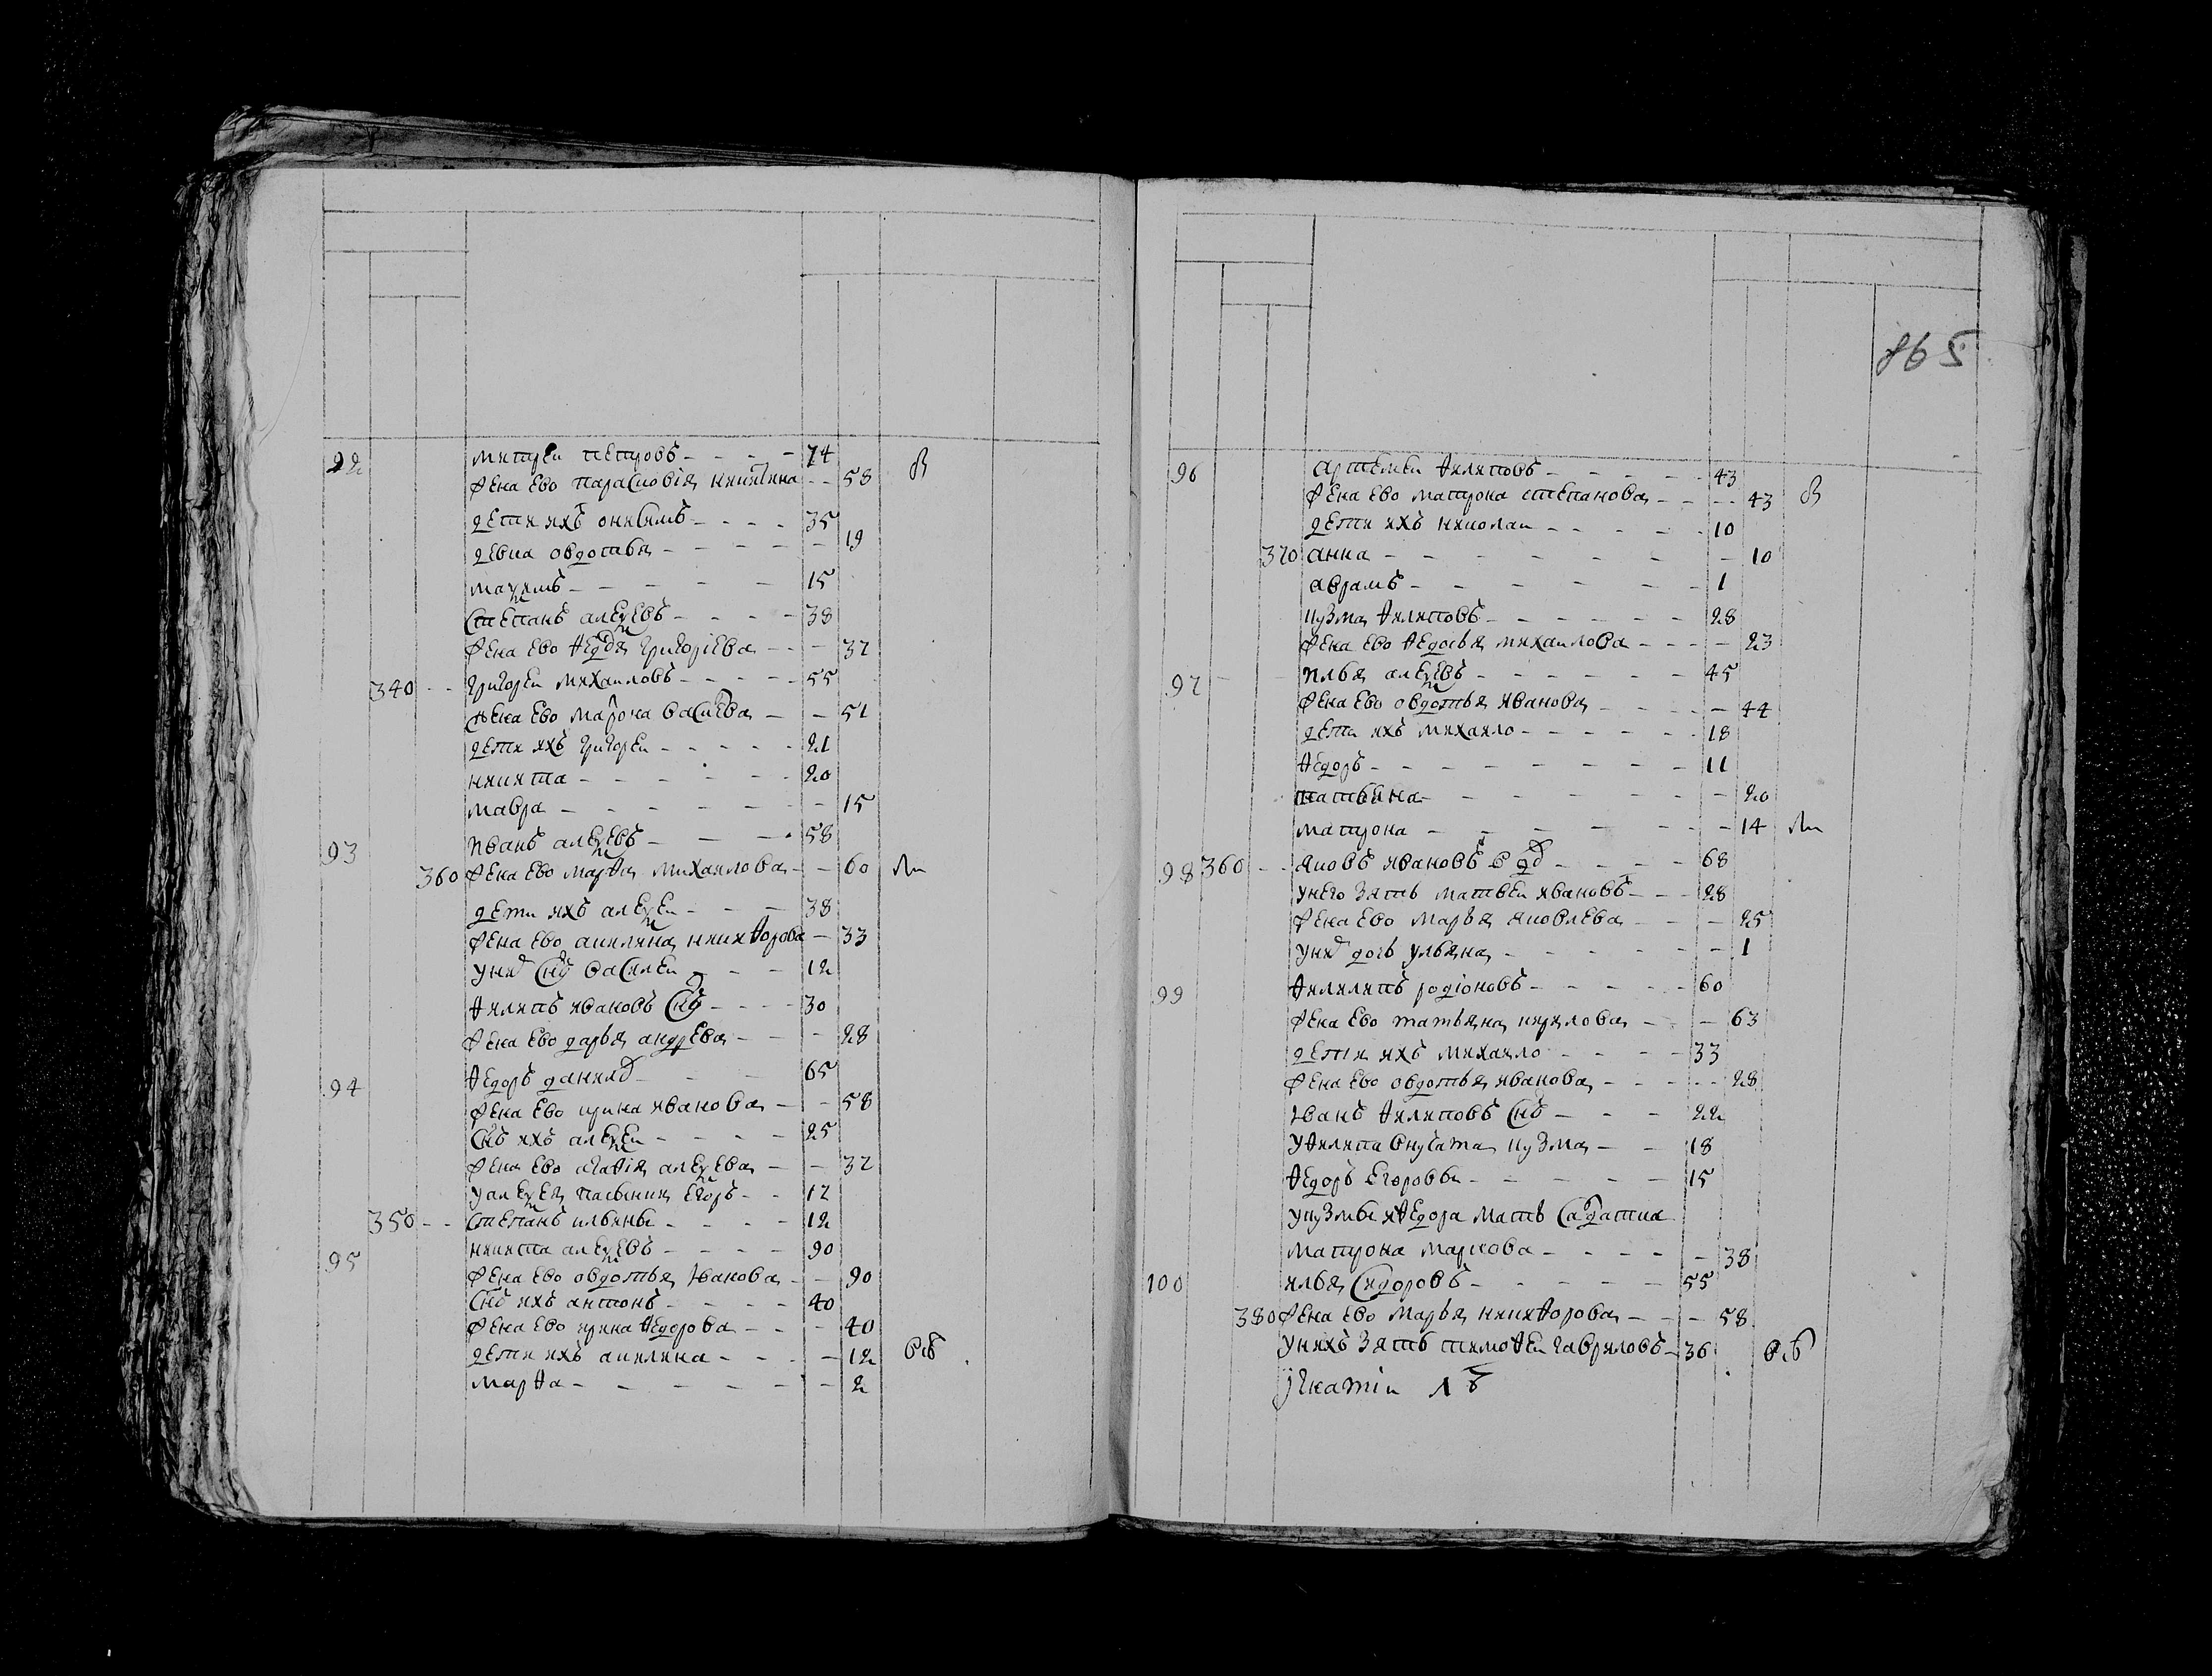 92 митреи петровъ - - - - 74
жена ево парасковія никитина - - 58 В
дети ихъ онисимъ - - - - 35
девка овдотья - - - - - 19
маѯимъ - - - - - 15
степанъ алеѯеевъ - - - - 38
жена ево григоріева - - - 37
340 - - григореи михаиловъ - - - - 55
жена ево матрона васильева - - 51
дети ихъ григореи - - - - - 21
никита - - - - - - 20
мавра - - - - - - - 15
93 иванъ алеѯеевъ - - - 58
360 жена ево марѳа михаилова - - 60
дети ихъ алеѯеи - - - 38
жена ево акилина никиѳорова - 33
у них снъ василеи - - - 12
ѳилипъ ивановъ снъ - - - - 30
жена ево дарья андреева - - - 28
94 ѳедоръ - - - 65
жена ево ирина иванова - - 58
снъ ихъ алеѯеи - - - - 25
жена ево агаѳія алеѯеева - - 37
у алеѯея пасынки егоръ - - 17
350 - - степанъ ильины - - - - 12
95 никита алеѯеевъ - - - - 90
жена ево овдотья иванова - - 90
снъ ихъ антонъ - - - - 40
жена ево ирина ѳедорова - - - 40
дети ихъ акилина - - - - 12
марѳа - - - - - - - 2
865
96 артемеи ѳилиповъ - - - - - 43
жена ево матрона степанова - - - - 43 В
дети ихъ николаи - - - - - 10
370 анна - - - - - - - - 10
аврамъ - - - - - - 1
кузма ѳилиповъ - - - - - - 28
жена ево ѳедосья михаилова - - - - 23
97 - - илья алеѯеевъ - - - - - - 45
жена ево овдотья иванова - - - - - 44
дети ихъ михаило - - - - - - 18
ѳедоръ - - - - - - - - 11
татьяна - - - - - - - 20
матрона - - - - - - - 14
98 360 - - яковъ ивановъ - - - - 68
у него зять матвеи ивановъ - - - 28
жена ево марья яковлева - - - 25
у них дочь ульяна - - - - - - 1
99 родіоновъ - - - - - 60
жена ево татьяна кирилова - - - 63
дети ихъ михаило - - - - 33
жена ево овдотья иванова - - - - - 28
иванъ ѳилиповъ снъ - - - 22
у ѳилипа внучата кузма - - 18
ѳедоръ егоровы - - - - - 15
у кузмы и ѳедора мать
матрона маркова - - - - - 38
100 илья сидоровъ - - - - - - 55
380 жена ево марья никиѳорова - - - 58
у нихъ зять тимоѳеи гавриловъ - 36